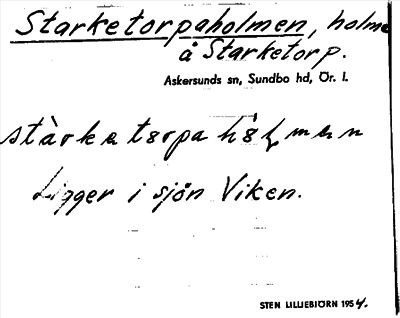 Starketorpaholmen, holme
å Starketorp.
Askersunds sn, Sundbo hd, Ör. l.
Ligger i sjön Viken.
STEN LILLIEBJÖRN 1954.